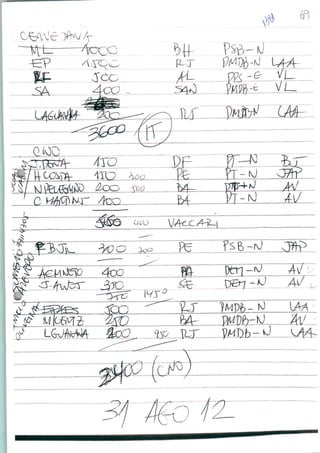 69
CERVEJARIA
ML 1000 BH PSB-N
EP 1500 RJ PMDB-N LAA
RF 500 AL PPS-E VL
SA 400 SAN PMDB-E VL
LAGUARDIA 200 RJ PMDB-N LAA
3600 IT
CNO
J. PENA 150 DF PT-N BJ
H COSTA 150 300 PE PT-N JAP
N PELEGRINO 200 500 BA PT-N AV
C MARTINS 100 BA PT-N AV
400 VACCARI
F BJR 300 200 PE PSB-N JAP
ACMNETO 400 BA DEM-N AV
J. ALVES 350 SE DEM-N AV
750 1450
EPAES 500 RJ PMDB-N LAA
250 BA PMDB-N AV
LGUARDIA 200 950 RJ PMDB-N LAA
2400 (CNO)
31 AGO 12